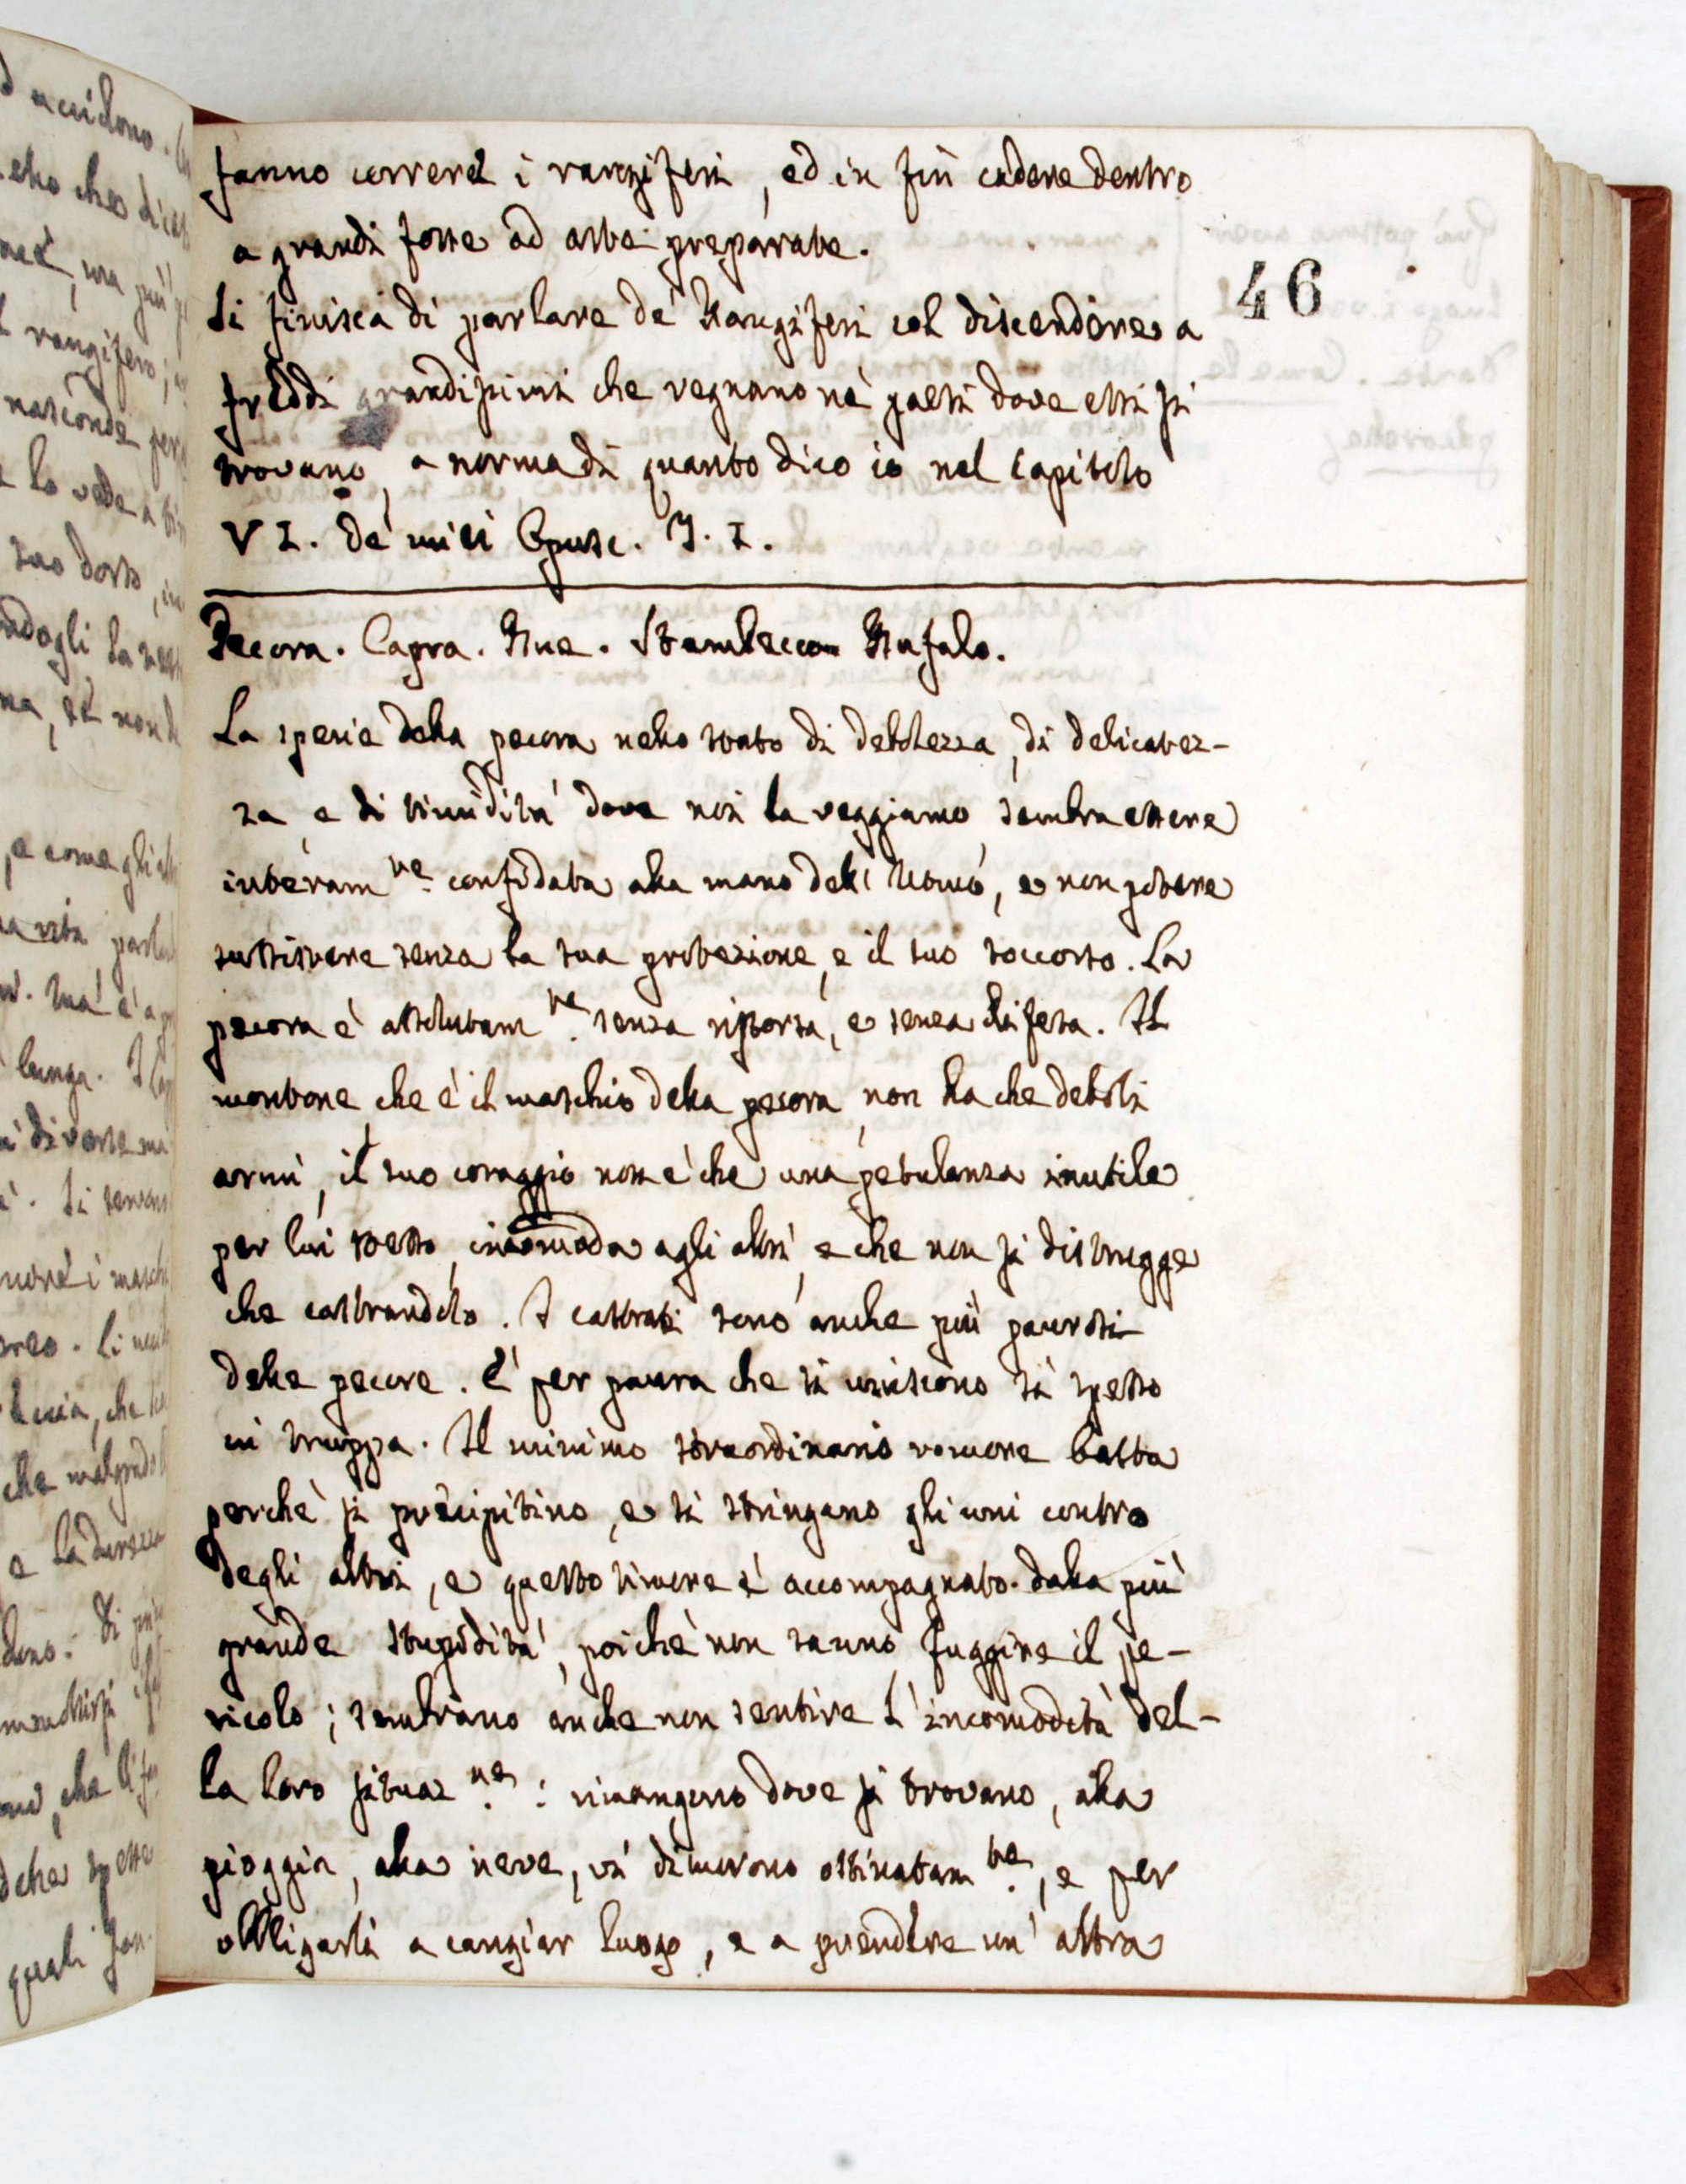 fanno correre i rangiferi, ed in fin cadere dentro
a grandi fosse ad arte preparate.
46
Si finisca di parlare de' Rangiferi col discendere a
freddi grandissimi che regnano ne' paesi dove essi si
trovano, a norma di quanto dico io nel Capitolo
VI. de' miei Opusc. T. I.
Pecora. Capra. Bue. Stambecco Bufalo.
La specie della pecora nello stato di debolezza, di delicatez-
za e di timidità dove noi la veggiamo, sembra essere
interam.te confidata alla mano dell'Uomo, e non potere
sussistere senza la sua protezione, e il suo soccorso. La
pecora è assolutam.te senza risorsa, e senza difesa. Il
montone, che è il maschio della pecora, non ha che deboli
armi, il suo coraggio non è che una petulanza inutile
per lui stesso, incomoda agli altri, e che non si distrugge
che castrandolo. I castrati sono anche più paurosi
delle pecore. È per paura che si uniscono sì spesso
in truppa. Il minimo straordinario romore basta
perchè si precipitino, e si stringano gli uni contro
degli altri, e questo timore è accompagnato dalla più
grande stupidità, poichè non sanno fuggire il pe-
ricolo; sembrano anche non sentire l'incomodità del-
la loro situaz.ne: rimangono dove si trovano, alla
pioggia, alla neve, vi dimorono ostinatam.te, e per
obbligarli a cangiar luogo, e a prendere un'altra